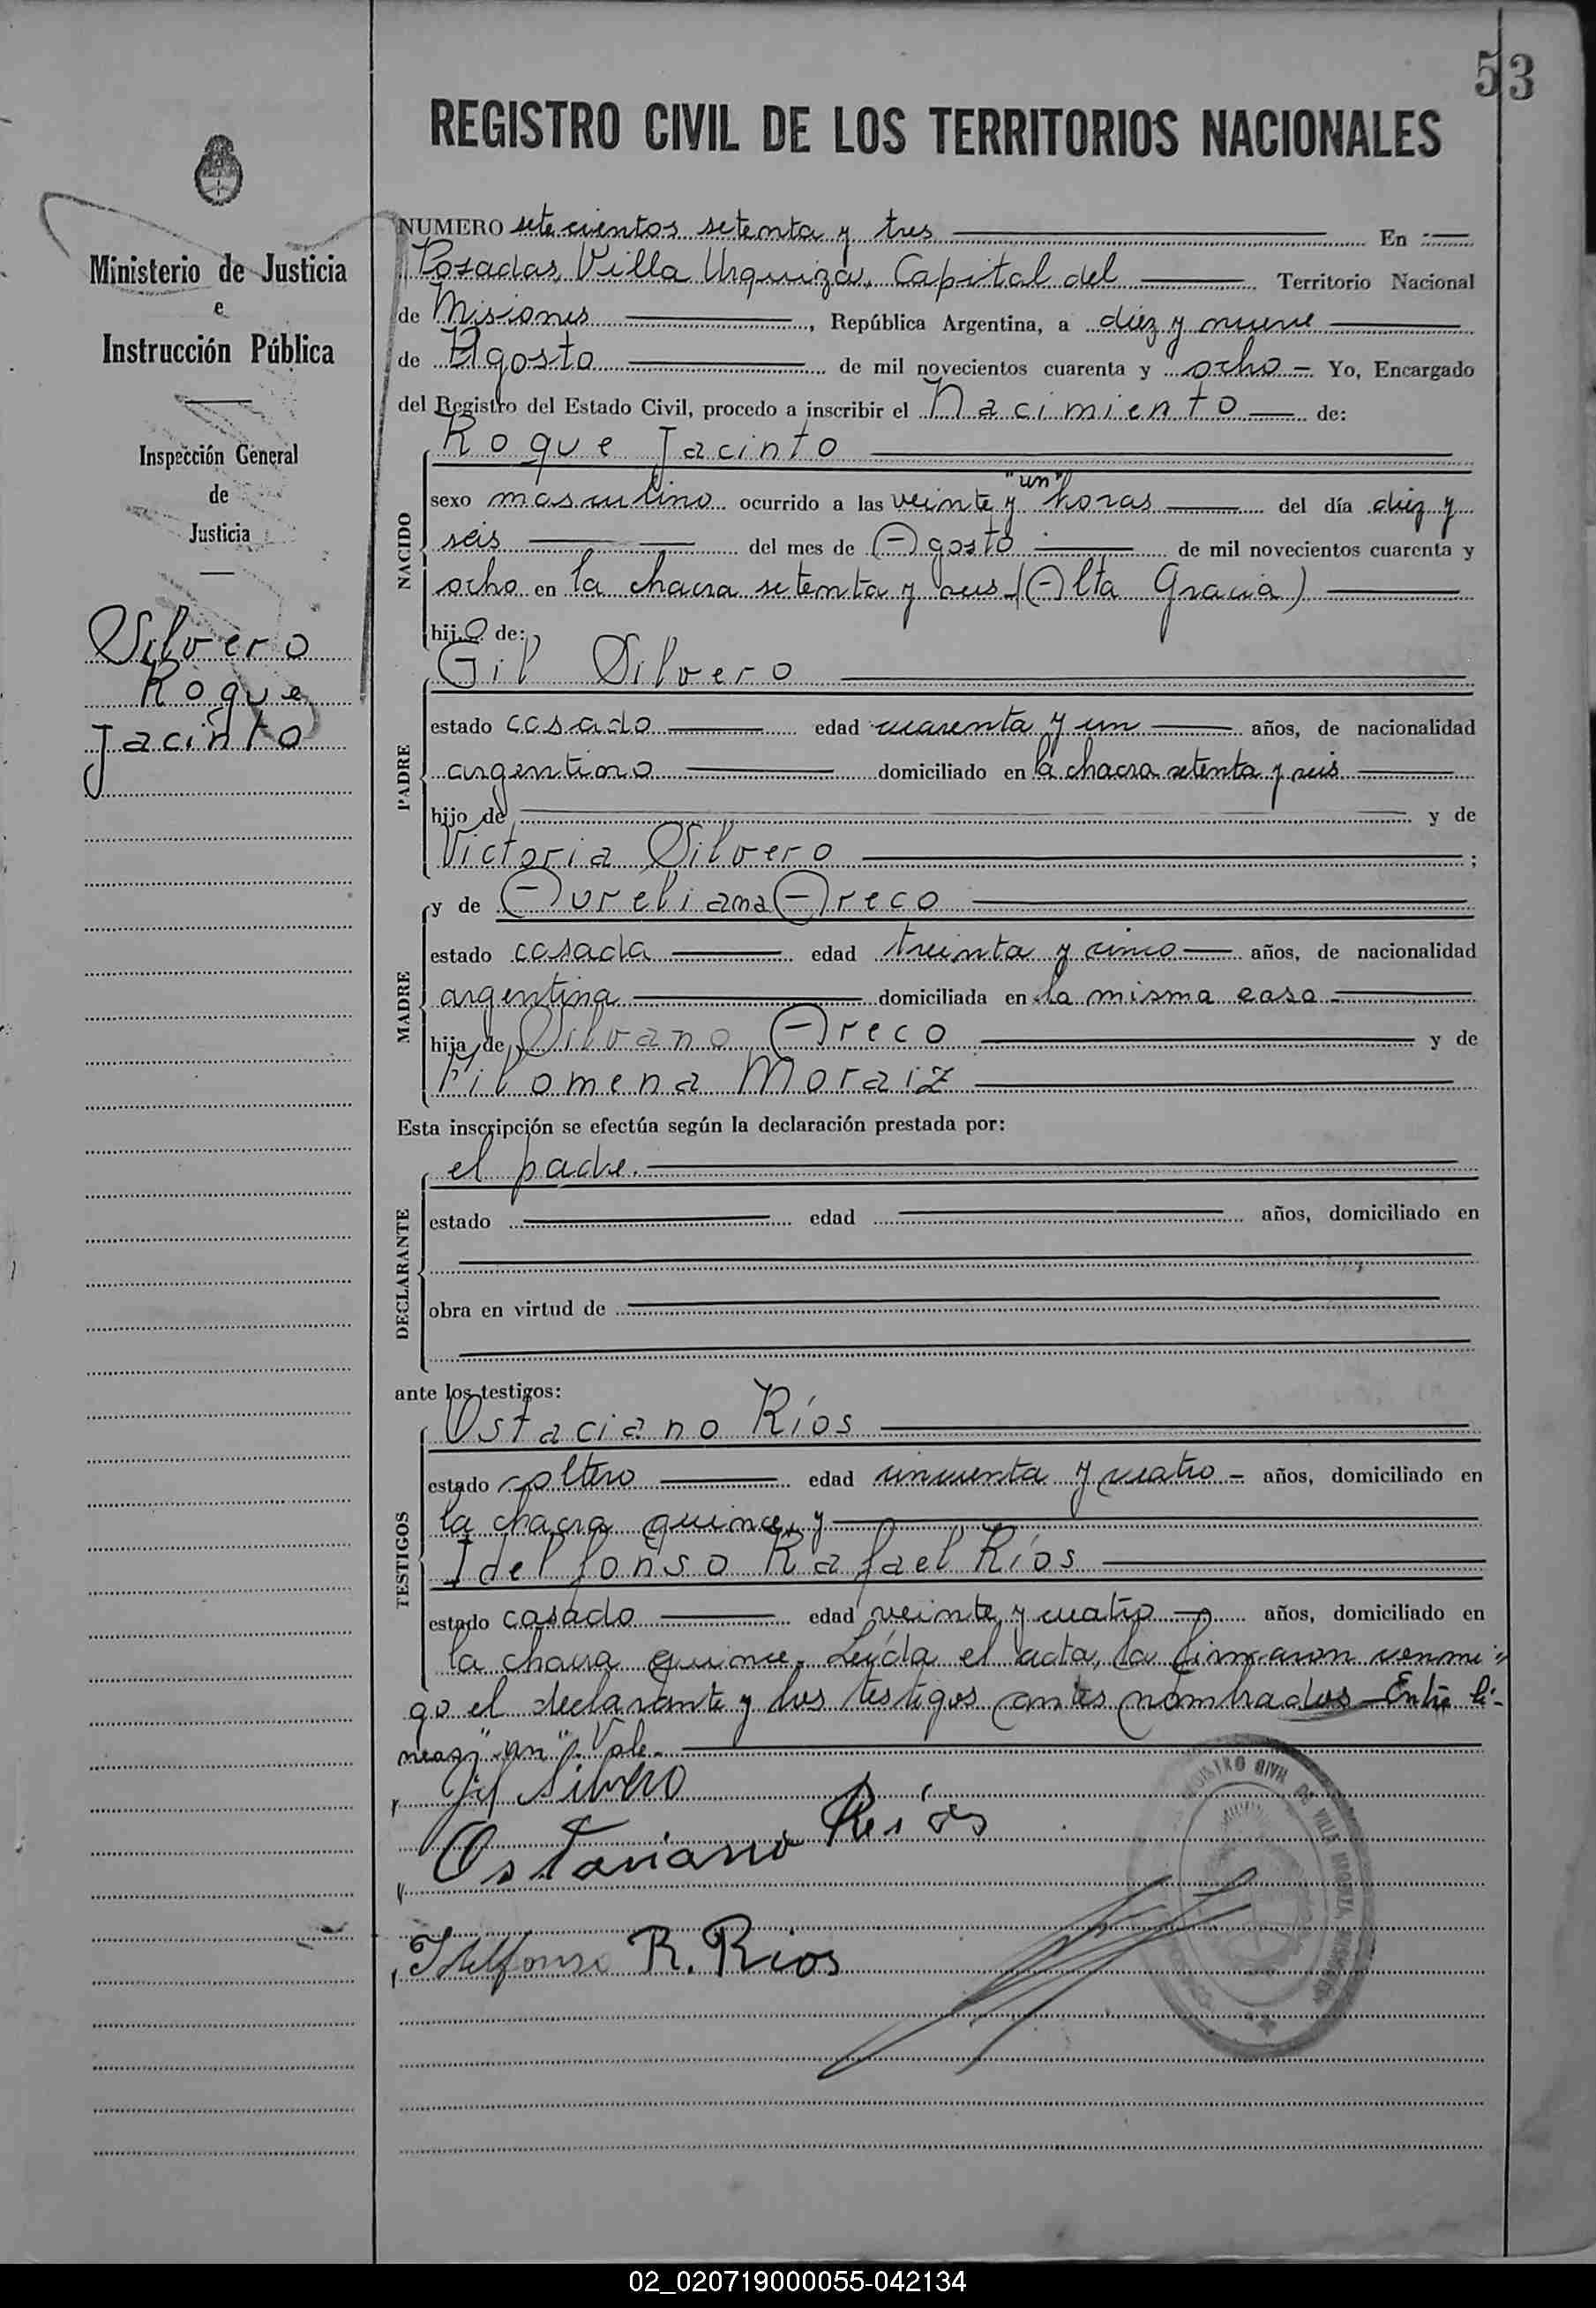 53
REGISTRO CIVIL DE LOS TERRITORIOS NACIONALES
Ministerio de Justicia
e
Instrucción Pública
Inspección General
de
Justicia
Silvero
Roque
Jacinto
NUMERO setecientos setenta y tres En
Posadas, Villa Urquiza, Capital del Territorio Nacional
de Misiones, República Argentina, a diez y nueve
de Agosto de mil novecientos cuarenta y ocho - Yo, Encargado
del Registro del Estado Civil, procedo a inscribir el Nacimiento de:
Roque Jacinto
"un"
NACIDO
sexo masculino ocurrido a las veinte y horas del día diez y
seis del mes de Agosto de mil novecientos cuarenta y
ocho en la chacra setenta y seis - (Alta Gracia)
hijo de:
Gil Silvero
PADRE
estado casado edad cuarenta y un años, de nacionalidad
argentino domiciliado en la chacra setenta y seis
hijo de y de
Victoria Silvero ;
y de Aureliana Areco
MADRE
estado casada edad treinta y cinco años, de nacionalidad
argentina domiciliada en la misma casa -
hija de Silvano Areco y de
Filomena Moraiz
Esta inscripción se efectúa según la declaración prestada por:
el padre.
DECLARANTE
estado edad años, domiciliado en
obra en virtud de
ante los testigos:
Ostaciano Ríos
TESTIGOS
estado soltero edad cincuenta y cuatro - años, domiciliado en
la chacra quince, y
Idelfonso Rafael Ríos
estado casado edad veinte y cuatro años, domiciliado en
la chacra quince. Leída el acta, la firmaron conmi=
go el declarante y los testigos antes nombrados - Entre lí-
neas: "un". Vale.
Gil Silvero
Ostaciano Ríos
Idelfonso R. Rios
REGISTRO CIVIL DE VILLA URQUIZA MISIONES
02_020719000055-042134